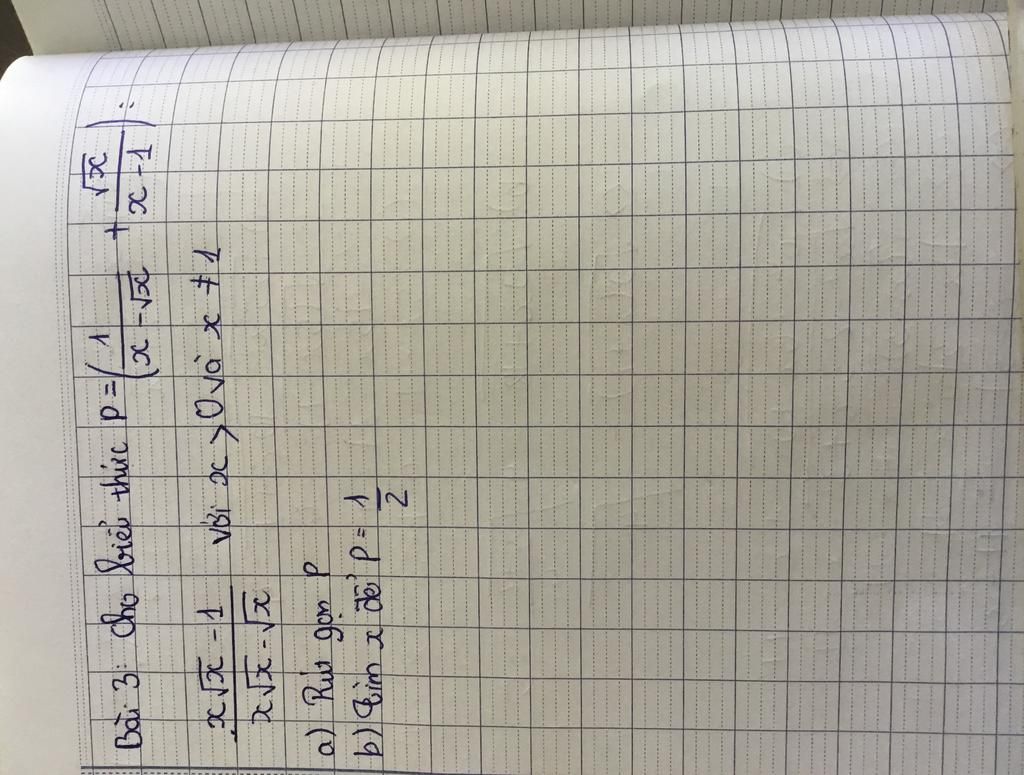 Bài 3: Cho biểu thức P = (1/(x - √x) + √x/(x - 1)) :
(x√x - 1)/(x√x - √x) với x > 0 và x ≠ 1
a) Rút gọn P
b) Tìm x để P = 1/2